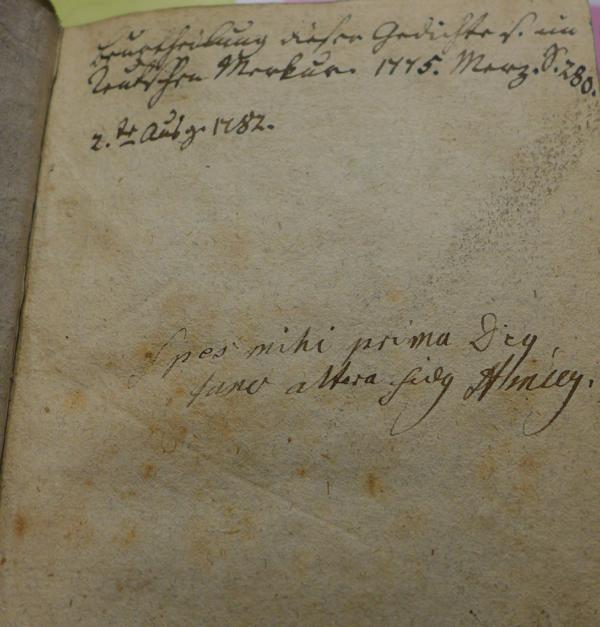 Beurtheilung dieser Gedichte s. im
Teutschen Merkur. 1775. Merz. S. 280.
2.te Ausg. 1782.
Spes mihi prima Deus,
altera fidus Amicus.